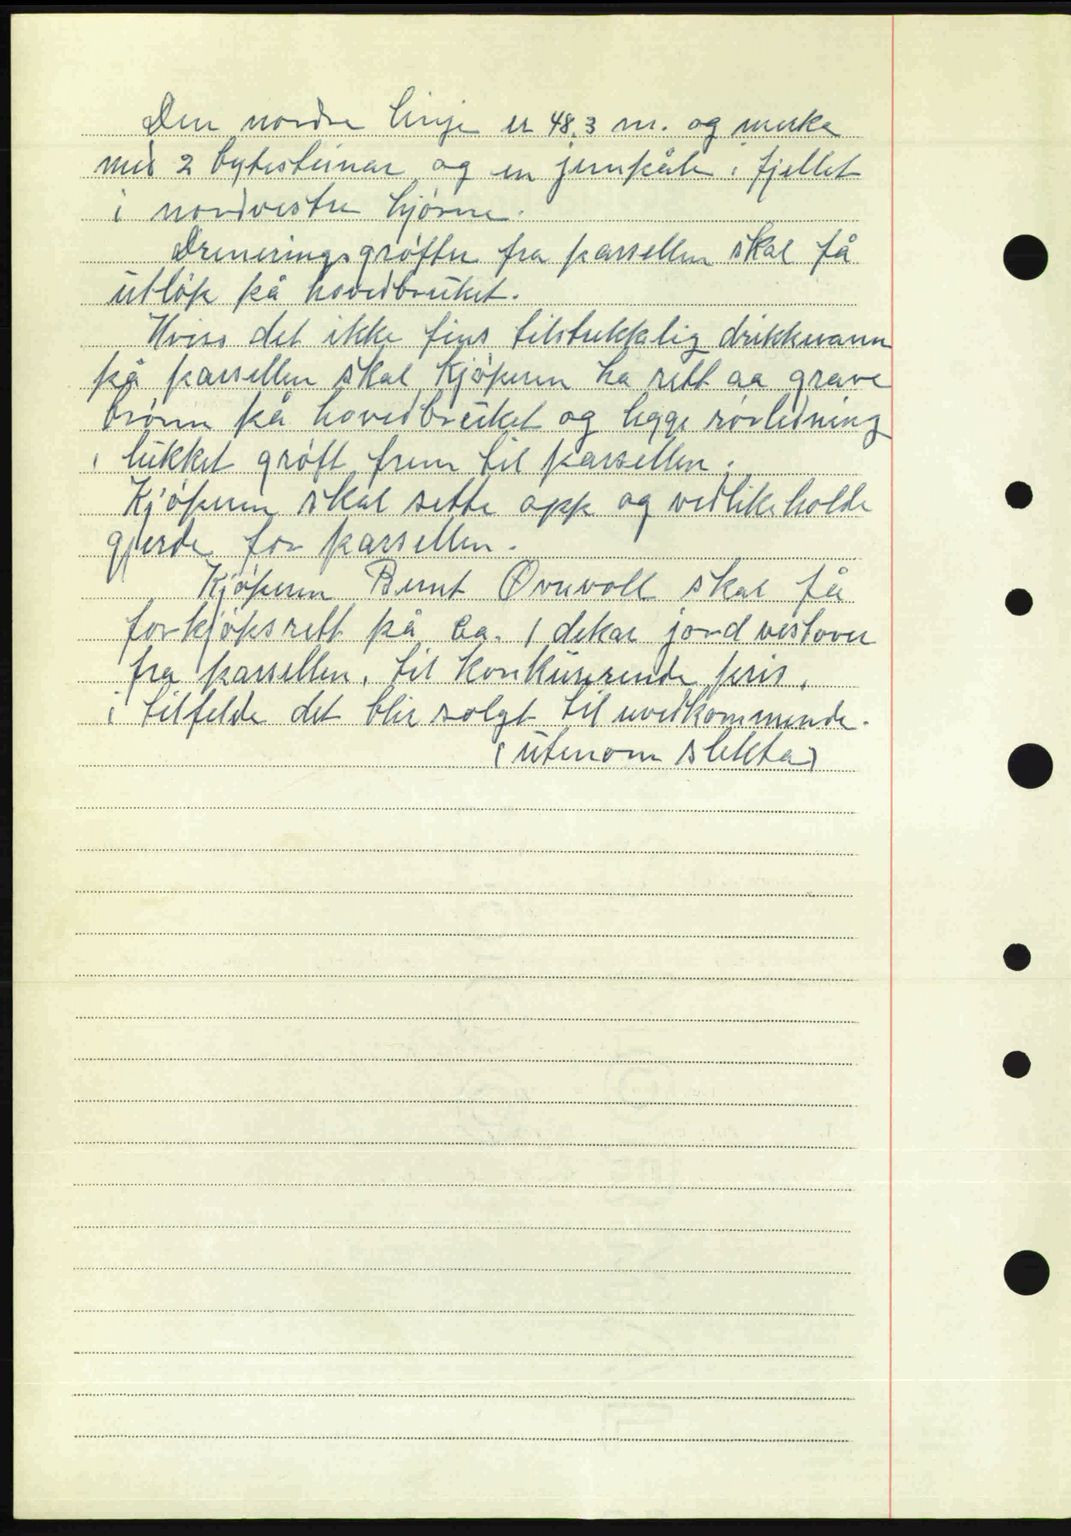 Den nordre linje er 48.3 m. og merka
med 2 bytesteinar og en jernpåle i fjellet
i nordvestre hjørne.
Dreneringsgrøfter fra parsellen skal få
utløp på hovedbruket.
Hviss det ikke fins tilstrekkelig drikkevann
på parsellen skal kjøperen ha rett aa grave
brønn på hovedbruket og legge rørledning
i lukket grøft frem til parsellen.
Kjøperen skal sette opp og vedlikeholde
gjerde for parsellen.
Kjøperen Bernt Ovrevoll skal få
forkjøpsrett på ca. 1 dekar jord vestover
fra parsellen, til konkurerende pris,
i tilfelde det blir solgt til uvedkommende.
(utenom slekta)